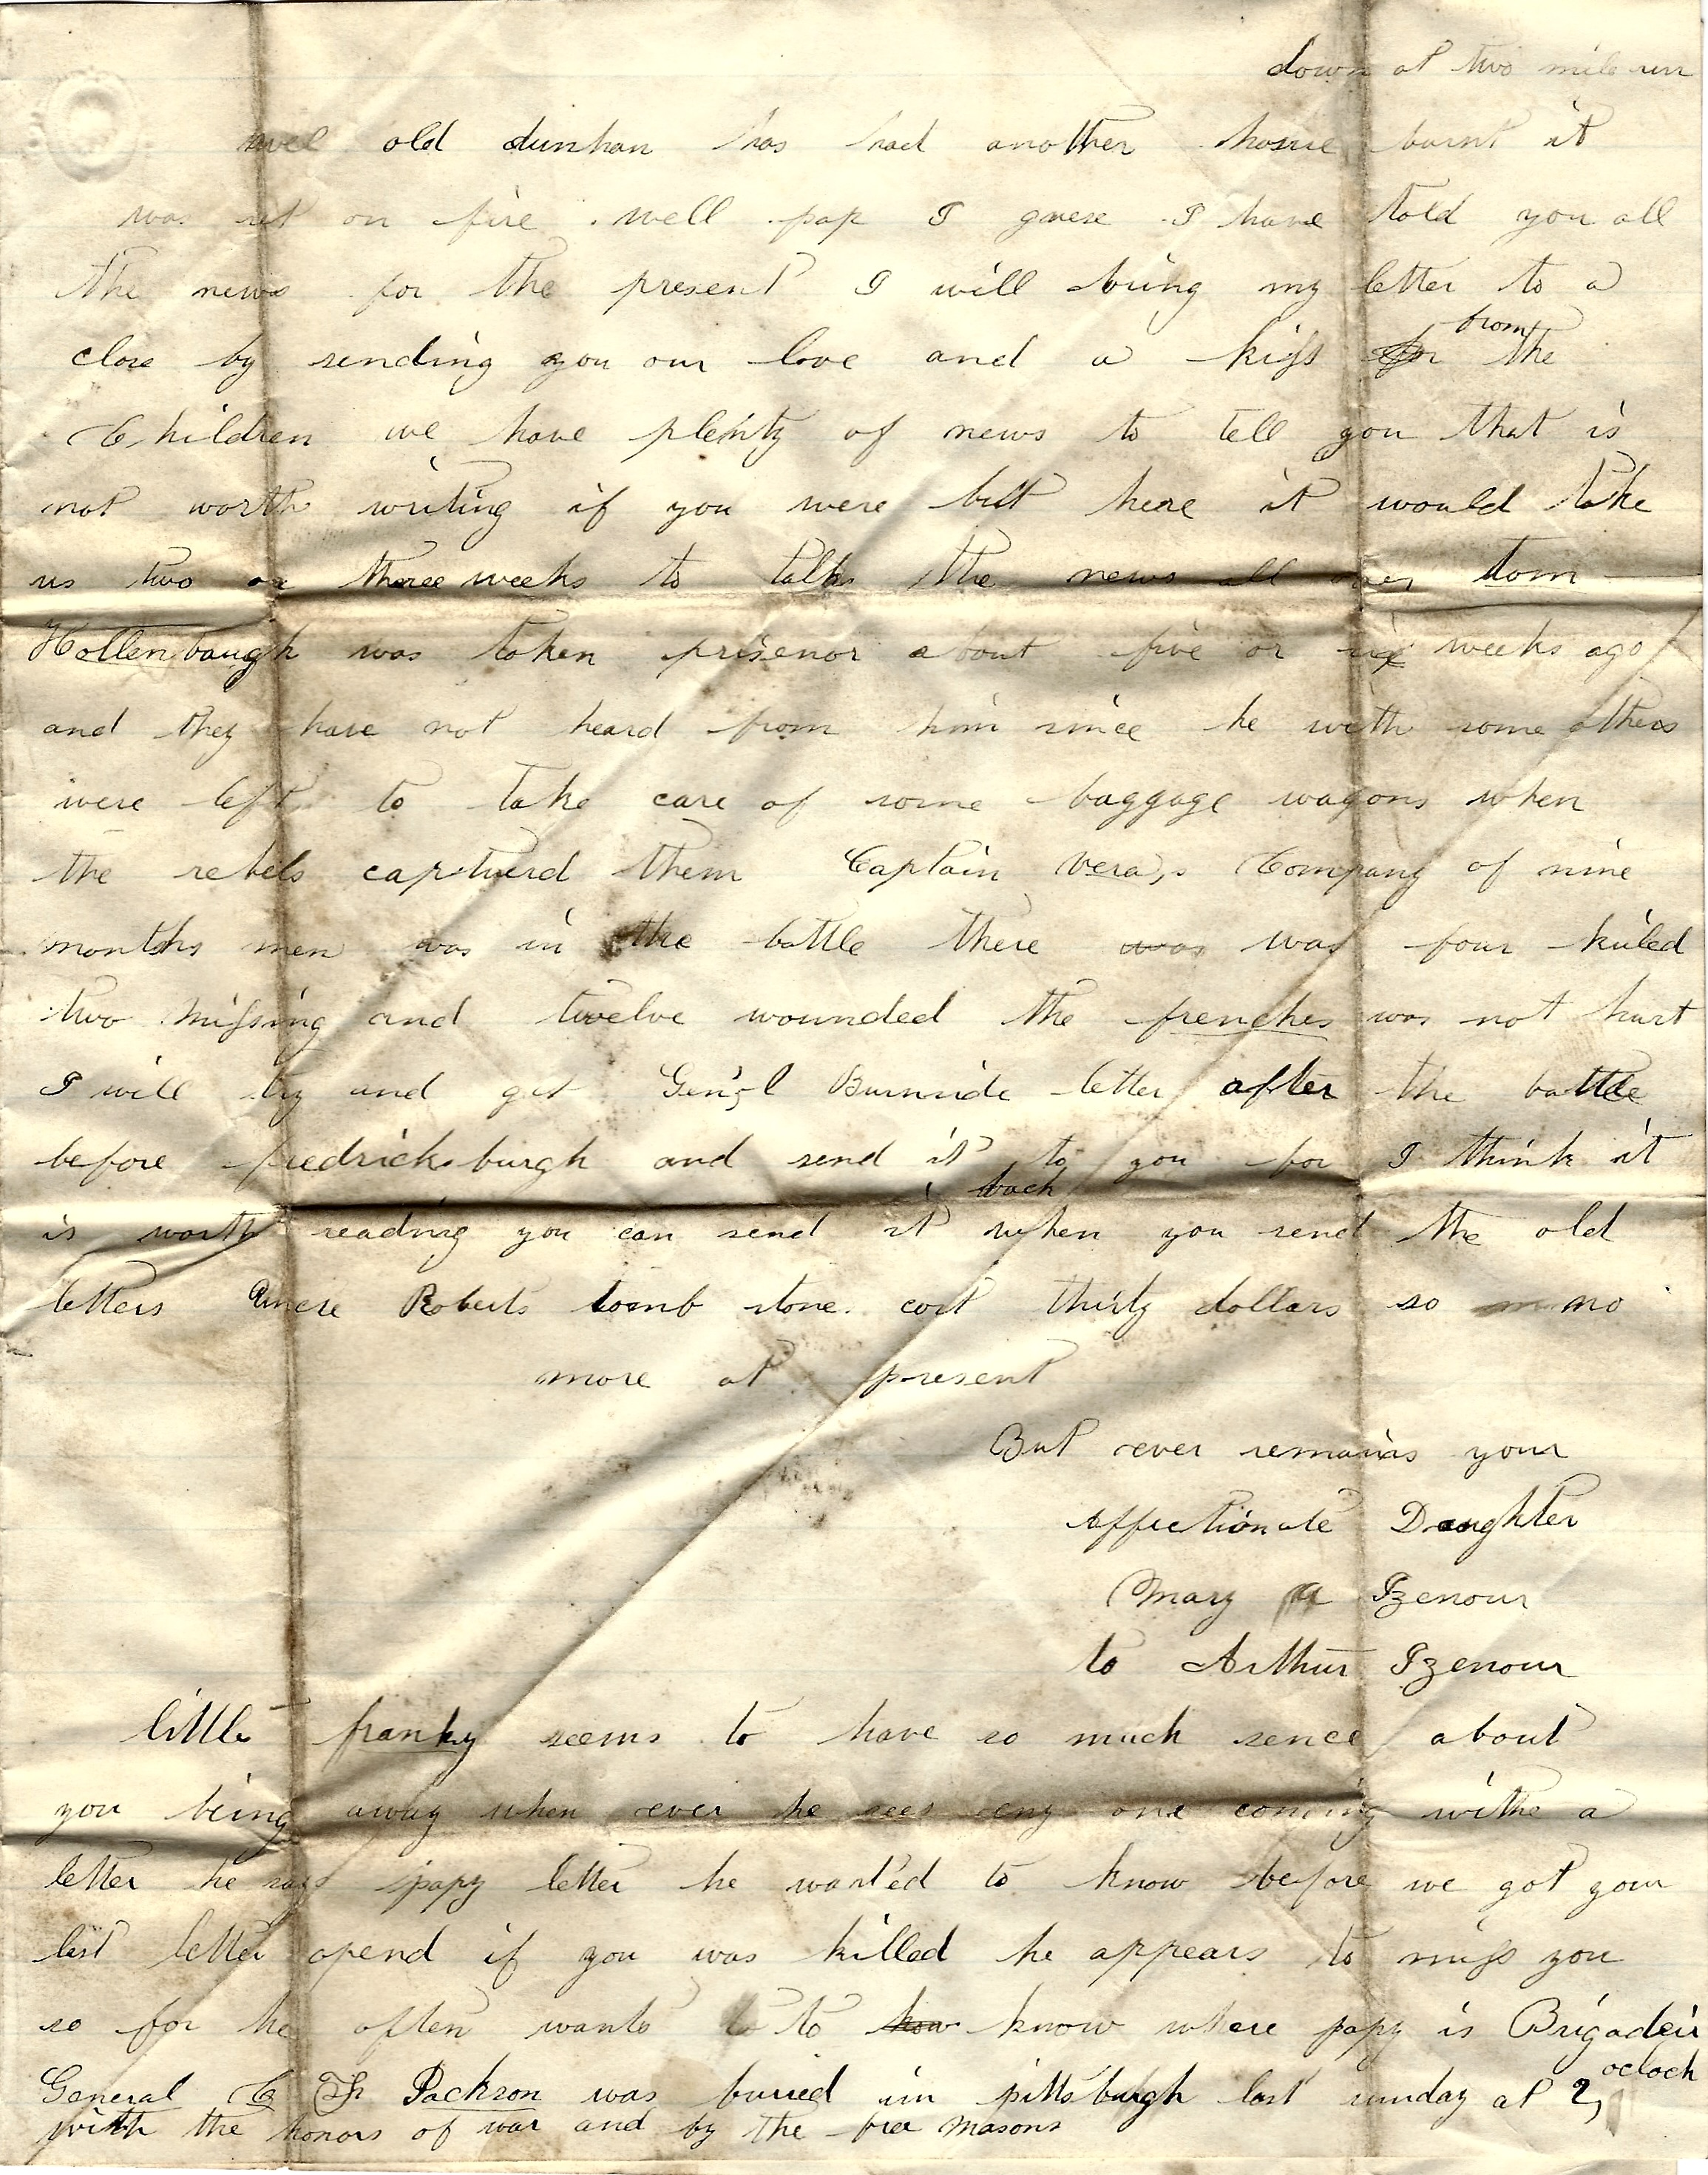 down at two mile run
well old dunhan has had another house burnt it
was set on fire . well pap I guese I have told you all
the news for the present I will bring my letter to a
close by sending you our love and a kiss from the
Children we have plenty of news to tell you that is
not worth writing if you were but here it would take
us two or three weeks to talk the news all over tom
Hollenbaugh was taken prisenor about five or six weeks ago
and they have not heard from him since he with some others
were left to take care of some baggage wagons when
the rebels capturd them Captain Vera,s Company of nine
months men was in the battle there was was four kiled
two missing and twelve wounded the frenches was not hurt
I will try and get Gen,l Burnside letter after the battle
before fredricksburgh and send it to you for I think it
is worth reading you can send it back when you send the old
letters Roberts tomb stone. cost thirty dollars so no
more at present
But ever remains your
affectionate Daughter
Mary A Izenour
to Arthur Izenour
little franky seems to have so much sence about
you being away when ever he sees eny one coming withe a
letter he says papy letter he wanted to know before we got your
last letter opend if you was killed he appears to miss you
so for he often wants to to know know where papy is Brigadeir
General C F Jackson was buried in pittsburgh last sunday at 2, ocloch
with the honors of war and by the free masons